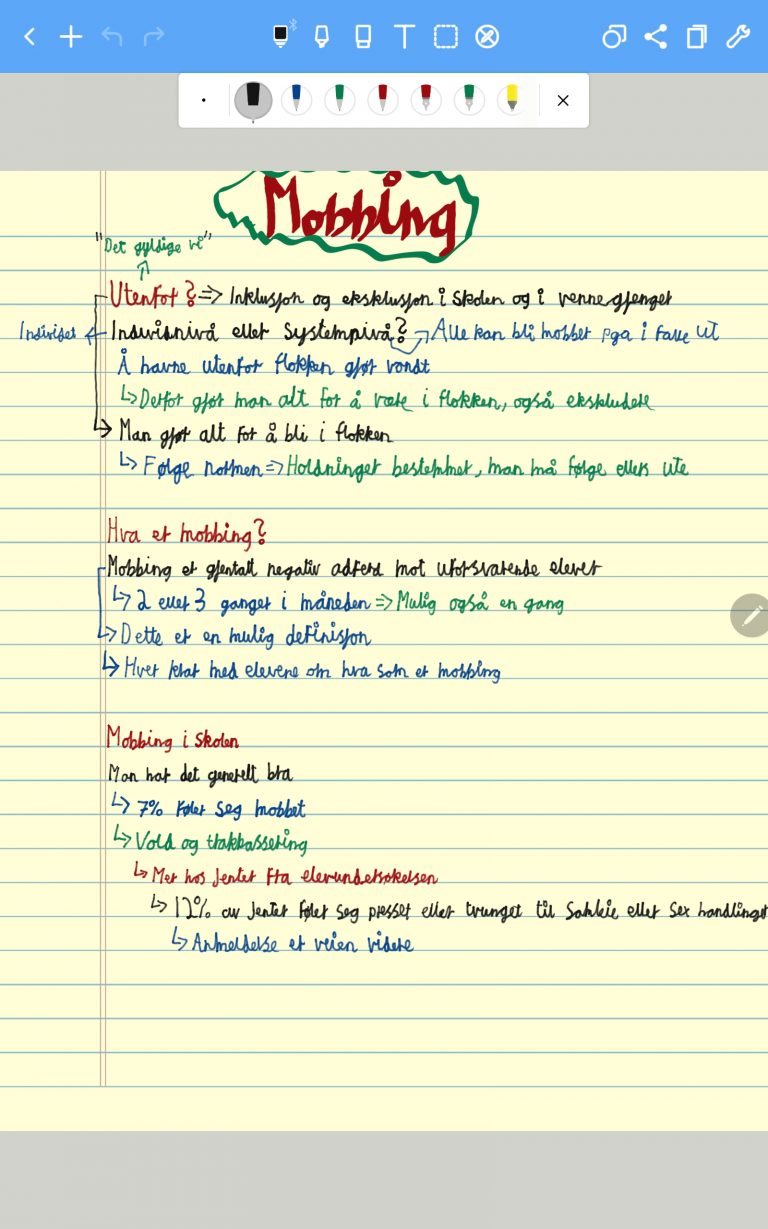 Mobbing
"Det gyldige vi"
Utenfor? => Inklusjon og eksklusjon i skolen og i vennegjenger
Individet ← Individnivå eller Systemnivå? → Alle kan bli mobbet pga i falle ut
Å havne utenfor flokken gjør vondt
↳ Derfor gjør man alt for å være i flokken, også ekskludere
→ Man gjør alt for å bli i flokken
↳ Følge normen => Holdninger bestemmer, man må følge ellers ute
Hva er mobbing?
Mobbing er gjentatt negativ adferd mot uforsvarende elever
↳ 2 eller 3 ganger i måneden => Mulig også en gang
↳ Dette er en mulig definisjon
↳ Hver klar med elevene om hva som er mobbing
Mobbing i skolen
Man har det generelt bra
↳ 7% føler seg mobbet
↳ Vold og trakkassering
↳ Mer hos jenter fra elevundersøkelsen
↳ 12% av jenter føler seg presset eller tvunget til Samleie eller Sex handlinger
↳ Anmeldelse er veien videre